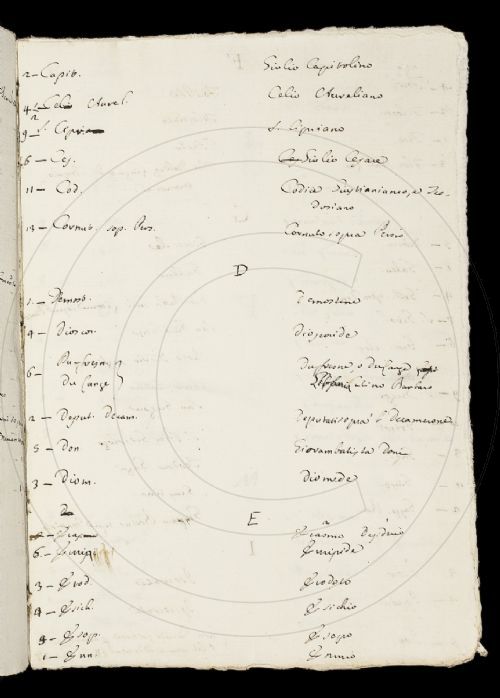 2 – Capit. Giulio Capitolino
4 – Celio Aurel. Celio Aureliano
9 – S. Cipria S. Cipriano
6 – Ces. Giulio Cesare
11 – Cod. Codice Giustinianeo, e Teo-
dosiano
13 – Cornut. sop. Pers. Cornuto sopra Persio
D
1 – Demost. Demostene
4 – Dioscor. Dioscoride
6 – Dufresn. Dufresne, o DuCange
Du Cange Latino Barbaro
2 – Deput. Decam. Deputati sopra il Decamerone
5 – Don Giovambatista Doni
3 – Diom. Diomede
E
Erasmo
6 – Eurip. Euripide
3 – Erod. Erodoto
4 – Esich. Esichio
4 – Esop. Esopo
1 – Enn. Ennio